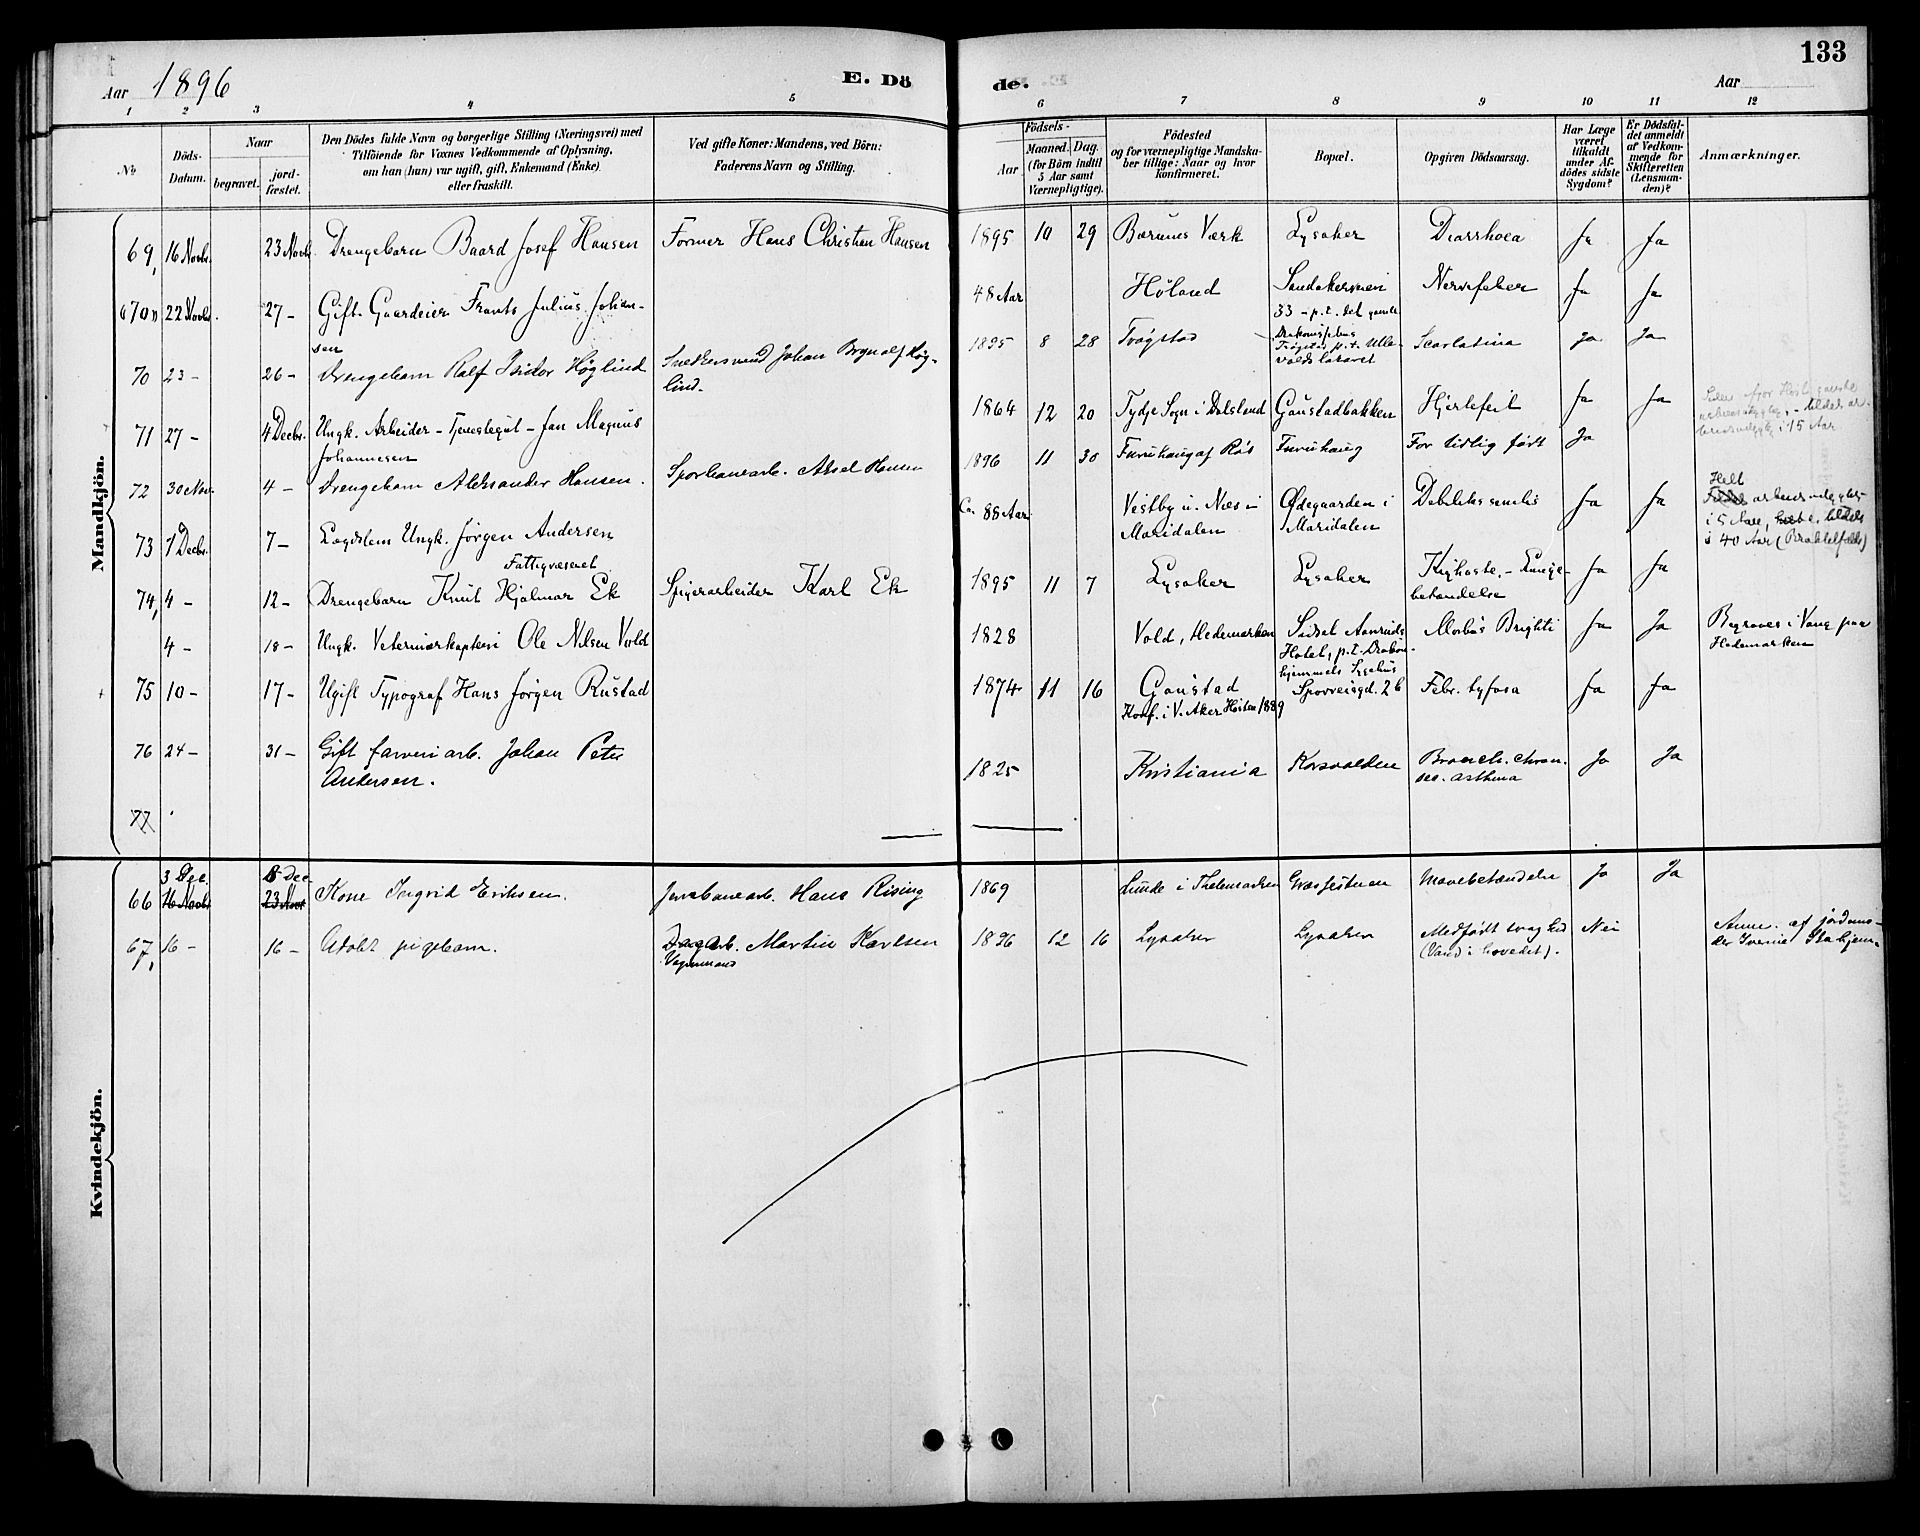 Aar 1896
E. Dö
de.
133
Aar
1 2 3 4 5 6 7 8 9 10 11 12
No
Döds-
Datum.
Naar
begravet.
jord-
fæstet.
Den Dödes fulde Navn og borgerlige Stilling (Næringsvei) med
Tilföiende for Voxnes Vedkommende af Oplysning,
om han (hun) var ugift, gift, Enkemand (Enke)
eller fraskilt.
Ved gifte Koner: Mandens, ved Börn:
Faderens Navn og Stilling.
Födsels-
Aar
Maaned. Dag.
(for Börn indtil
5 Aar samt
Værnepligtige).
Födested
og for værnepligtige Mandska-
ber tillige: Naar og hvor
konfirmeret.
Bopæl.
Opgiven Dödsaarsag.
Har Læge
været
tilkaldt
under Af-
dödes sidste
Sygdom?
Er Dödsfal-
det anmeldt
af Vedkom-
mende for
Skifteretten
(Lensman-
den)?
Anmærkninger.
Mandkjön.
69, 16 Novbr. 23 Novbr. Drengebarn Baard Josef Hansen Former Hans Christian Hansen 1895 10 29 Bærums Værk Lysaker Diarrhoea Ja Ja
22 Novbr. 27 - Gift. Gaardeier Frants Julius Johan-
sen
48 Aar Høland Sandakerveien
33 - p.t. det gamle
Nervefeber Ja Ja
70 23 - 26 - Drengebarn Ralf Isidor Höglind Snedkersvend Johan Brynolf Hög-
lind.
1895 8 28 Trøgstad
Trøgstad p.t. Ulle-
volds lazaret
Scarlatina Ja Ja
71 27 - 4 Decbr. Ungk. Arbeider - Tjenestegut - Jan Magnus
Johannesen
1864 12 20 Tydje Sogn i Dalsland Gaustadbakken Hjertefeil Ja Ja
i 15 Aar
72 30 Nov. 4 - Drengebarn Aleksander Hansen. Sporbanearb. Aksel Hansen 1896 11 30 Furuhaug af Røs Furuhaug For tidlig født Ja
73 1 Decbr. 7 - Lægdslem Ungk. Jørgen Andersen
Fattigvæsenet
Ca. 88 Aar Vestby u. Næs i
Maridalen
Ødegaarden i
Maridalen
Debilitas senilis Ja Ja
Helt
i 5 Aar, deels
i 40 Aar
74, 4 - 12 - Drengebarn Knut Hjalmar Ek Spigerarbeider Karl Ek 1895 11 7 Lysaker Lysaker Kighoste. - Lunge-
betændelse
Ja Ja
4 - 18 - Ungk. Veterinærkaptein Ole Nilsen Vold 1828 Vold, Hedemarken Sidst Aanruds
Hotel, p.t. Diakon-
hjemmets Sygehus
Morbus Brighti Ja Ja Begraves i Vang paa
Hedemarken
75 10 - 17 - Ugift Typograf Hans Jørgen Rustad 1874 11 16 Gaustad
Konf. i V. Aker Høsten 1889
Sporveisgd. 26 Febr. tyfosa Ja Ja
76 24 - 31 - Gift farveriarb. Johan Peter
Andersen.
1825 Kristiania Korsvolden Bronch. chron-
asthma
Ja Ja
77
Kvindekjön.
3 Dec. 8 Dec.
66 16 Novbr 23 Novr Kone Ingrid Eriksen. Jernbanearb. Hans Rising 1869 Lunde i Thelemarken Græsjestuen Mavebetændelse Ja Ja
67, 16 - 16 - Udøbt pigebarn. Dagarb. Martin Karlsen
Vognmand
1896 12 16 Lysaker Lysaker Medfødt svaghed
(Vand i hovedet).
Nei Anm. af jordemo-
der